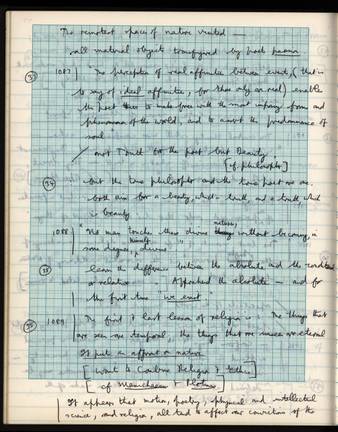 The remotest spaces of nature visited —
all material objects transfigured by poet's passion
(33)
1087 "The perception of real affinities between events, (that is
to say of ideal affinities, for those only are real) enables
the poet thus to make free with the most imposing forms and
phenomena of the world, and to assert the predominance of
soul
not Truth for the poet but Beauty.
[cf philosophy]
(34) but the true philosopher and the true poet are one.
both aim for a beauty, which is truth, and a truth which
is beauty
natures,
1088 "No man touches these divine without becoming, in
some degree, himself divine"
learn the difference between the absolute and the conditional
or relative. " Apprehend the absolute — and for
the first time "we exist"
1089 The first & last lesson of religion is. The things that
are seen are temporal, the things that are unseen are eternal
It puts an affront on nature
[ Religion & Ethics ]
[ cf Manichean & Plotinus ]
It appears that motion, poetry, physical and intellectual
science, and religion, all tend to affect our convictions of the